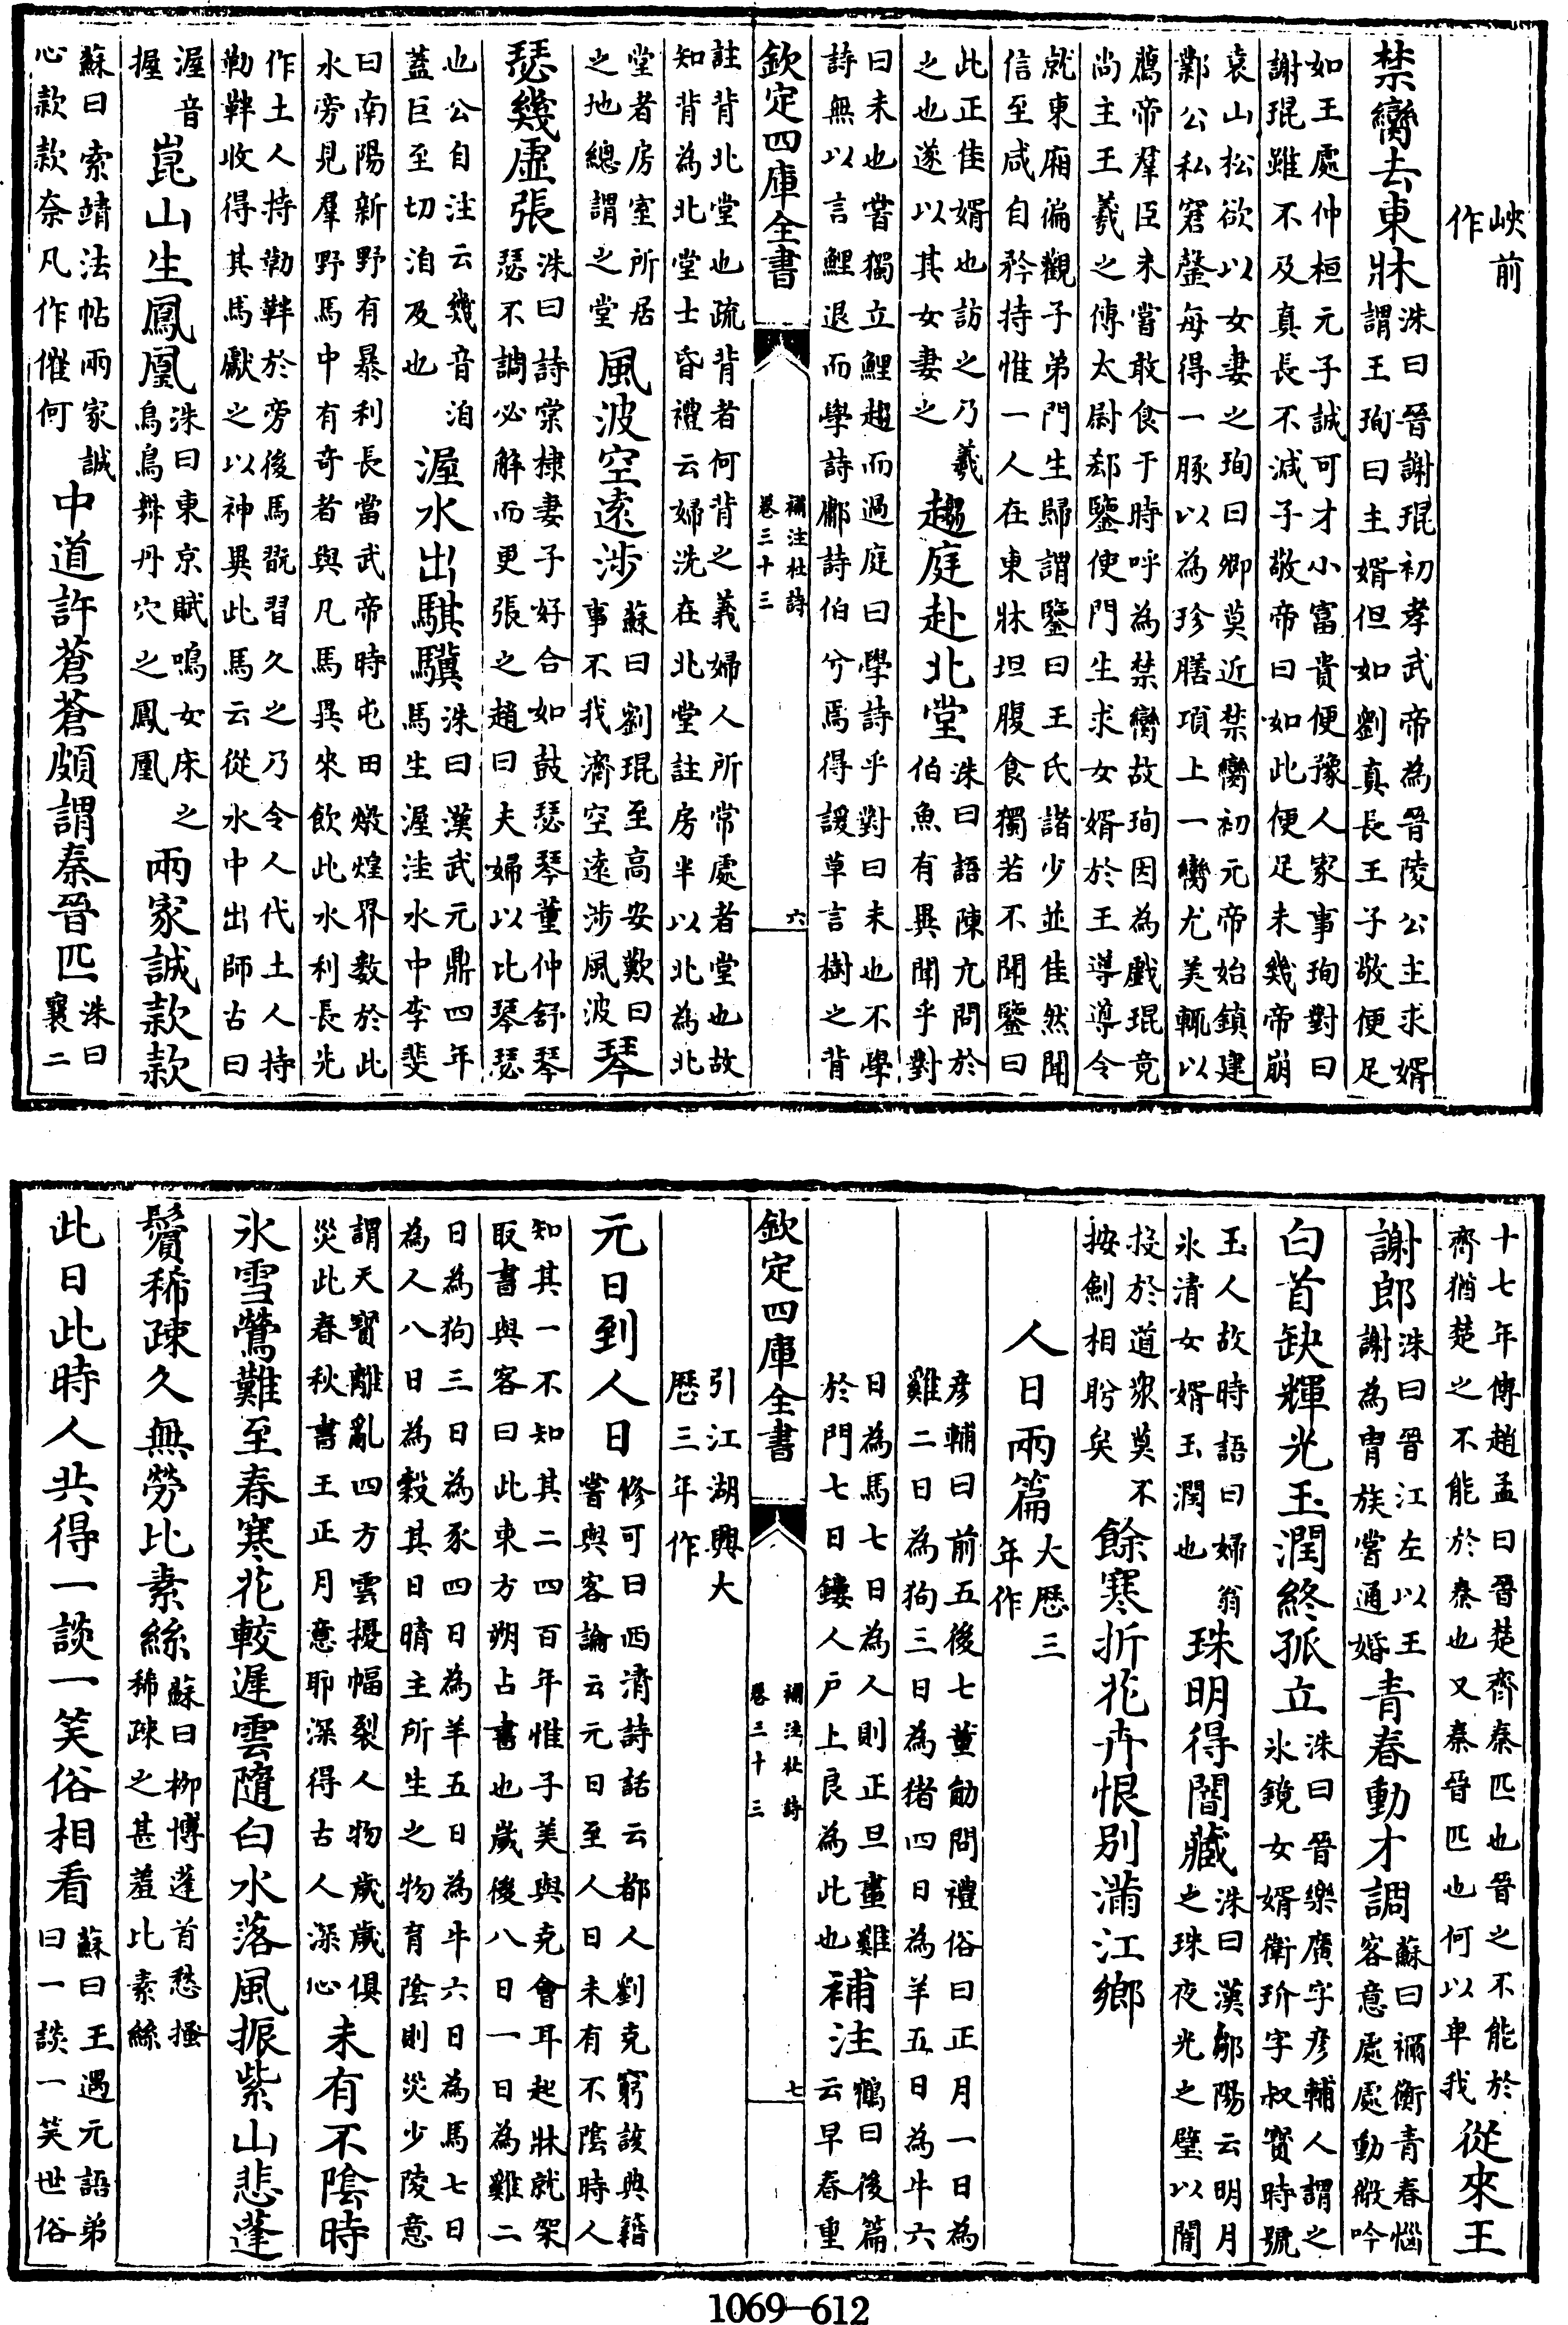 峽前作
禁臠去東牀洙曰晉謝琨初孝武帝為晉陵公主求婿謂王珣曰主婿但如劉真長王子敬便足
如王處仲桓元子誠可才小富貴便豫人家事珣對曰謝琨雖不及真長不減子敬帝曰如此便足未幾帝崩
袁山松欲以女妻之珣曰卿莫近禁臠初元帝始鎮建鄴公私窘罄每得一豚以為珍膳項上一臠尤美輒以
薦帝羣臣未嘗敢食于時呼為禁臠故珣因為戲琨竟尚主王羲之傳太尉郄鑒使門生求女婿於王導導令
就東廂徧觀子弟門生歸謂鑒曰王氏諸少並佳然聞信至咸自矜持惟一人在東牀坦腹食獨若不聞鑒曰
此正佳婿也訪之乃羲之也遂以其女妻之趨庭赴北堂洙曰語陳亢問於伯魚有異聞乎對
曰未也嘗獨立鯉趨而過庭曰學詩乎對曰未也不學詩無以言鯉退而學詩鄘詩伯兮焉得諼草言樹之背
欽定四庫全書 補注杜詩卷三十三 六
註背北堂也疏背者何背之義婦人所常處者堂也故知背為北堂士昏禮云婦洗在北堂註房半以北為北
堂者房室所居之地總謂之堂風波空遠涉蘇曰劉琨至高安歎曰事不我濟空遠涉風波琴
瑟幾虛張洙曰詩棠棣妻子好合如鼓瑟琴董仲舒琴瑟不調必解而更張之趙曰夫婦以比琴瑟
也公自注云幾音洎蓋巨至切洎及也渥水出騏驥洙曰漢武元鼎四年馬生渥洼水中李斐
曰南陽新野有暴利長當武帝時屯田燉煌界數於此水旁見羣野馬中有奇者與凡馬異來飲此水利長先
作土人持勒靽於旁後馬翫習久之乃令人代土人持勒靽收得其馬獻之以神異此馬云從水中出師古曰
渥音握崑山生鳳凰洙曰東京賦鳴女床之鳥鳥舞丹穴之鳳凰兩家誠款款
蘇曰索靖法帖兩家誠心款款奈凡作催何中道許蒼蒼頗謂秦晉匹洙曰襄二
十七年傳趙孟曰晉楚齊秦匹也晉之不能於齊猶楚之不能於秦也又秦晉匹也何以卑我從來王
謝郎洙曰晉江左以王謝為胄族嘗通婚青春動才調蘇曰禰衡青春惱客意處處動微吟
白首缺輝光玉潤終孤立洙曰晉樂廣字彥輔人謂之氷鏡女婿衛玠字叔寶時號
玉人故時語曰婦翁氷清女婿玉潤也珠明得闇藏洙曰漢鄒陽云明月之珠夜光之璧以闇
投於道衆莫不按劍相盻矣餘寒折花卉恨別滿江鄉
人日兩篇大厯三年作
彥輔曰前五後七董勛問禮俗曰正月一日為雞二日為狗三日為猪四日為羊五日為牛六
日為馬七日為人則正旦畫雞於門七日鏤人户上良為此也補注鶴曰後篇云早春重
欽定四庫全書 補注杜詩卷三十三 七
引江湖興大厯三年作
元日到人日修可曰西清詩話云都人劉克窮該典籍嘗與客論云元日至人日未有不陰時人
知其一不知其二四百年惟子美與克會耳起牀就架取書與客曰此東方朔占書也歲後八日一日為雞二
日為狗三日為豕四日為羊五日為牛六日為馬七日為人八日為糓其日晴主所生之物育陰則災少陵意
謂天寶離亂四方雲擾幅裂人物歲歲俱災此春秋書王正月意耶深得古人深心未有不陰時
氷雪鶯難至春寒花較遲雲隨白水落風振紫山悲蓬
鬢稀疎久無勞比素絲蘇曰柳愽蓬首愁搔稀疎之甚羞比素絲
此日此時人共得一談一笑俗相看蘇曰王遇元語弟曰一談一笑世俗
1069—612